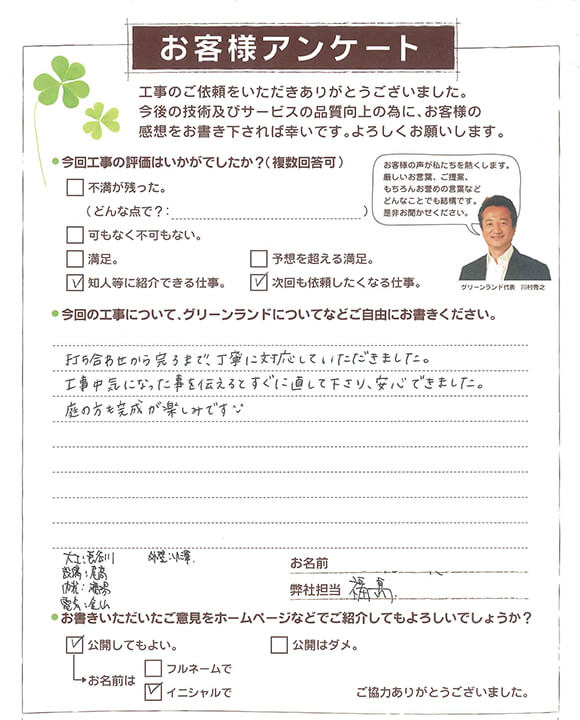 お客様アンケート
工事のご依頼をいただきありがとうございました。
今後の技術及びサービスの品質向上の為に、お客様の
感想をお書き下されば幸いです。よろしくお願いします。
今回工事の評価はいかがでしたか？(複数回答可)
不満が残った。
(どんな点で？:)
可もなく不可もない。
満足。
予想を超える満足。
知人等に紹介できる仕事。
次回も依頼したくなる仕事。
お客様の声が私たちを熱くします。
厳しいお言葉、ご提案、
もちろんお誉めの言葉など
どんなことでも結構です。
是非お聞かせください。
グリーンランド代表 川村秀之
今回の工事について、グリーンランドについてなどご自由にお書きください。
打ち合わせから完了まで、丁寧に対応していただきました。
工事中気になった事を伝えるとすぐに直して下さり、安心できました。
庭の方も完成が楽しみです
大工:長谷川
電気:金山
お名前
弊社担当
お書きいただいたご意見をホームページなどでご紹介してもよろしいでしょうか？
公開してもよい。
公開はダメ。
お名前は
フルネームで
イニシャルで
ご協力ありがとうございました。